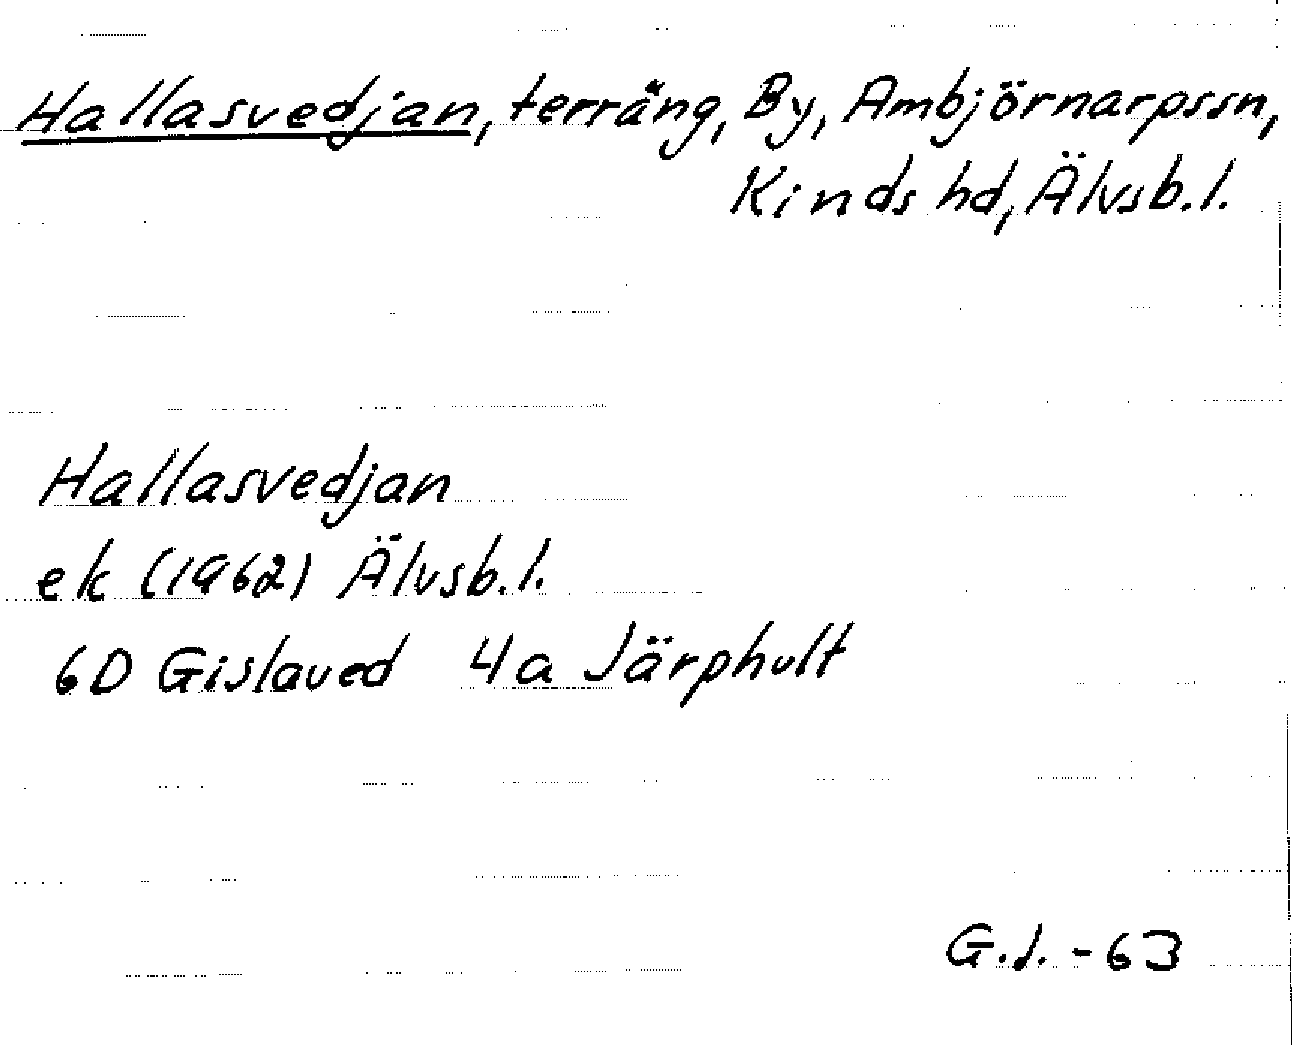 Hallasvedjan, terräng, By, Ambjörnarpssn,
Kinds hd, Älvsb.l.
Hallasvedjan
ek (1962) Älvsb.l.
6D Gislaved 4a Järphult
G.l. -63